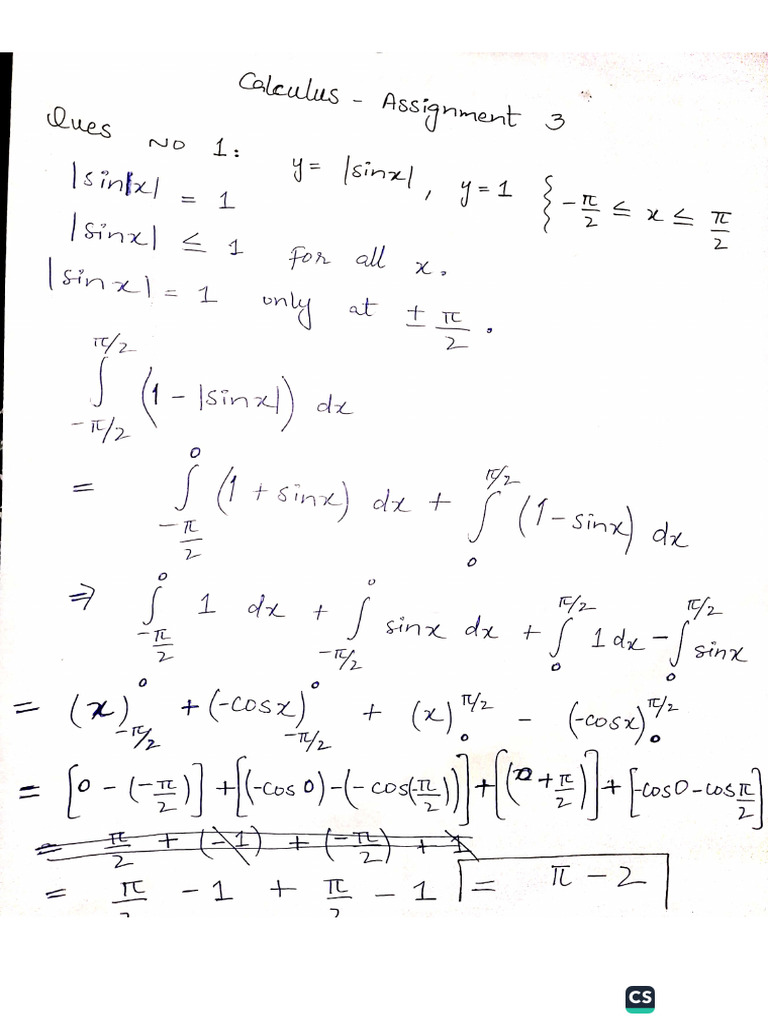 Calculus - Assignment 3
Ques No 1: y = |sinx|, y = 1 { -π/2 ≤ x ≤ π/2
|sin|x| = 1
|sinx| ≤ 1 for all x.
|sinx| = 1 only at ± π/2.
∫_{-π/2}^{π/2} (1 - |sinx|) dx
= ∫_{-π/2}^{0} (1 + sinx) dx + ∫_{0}^{π/2} (1 - sinx) dx
⇒ ∫_{-π/2}^{0} 1 dx + ∫_{-π/2}^{0} sinx dx + ∫_{0}^{π/2} 1 dx - ∫_{0}^{π/2} sinx
= (x)_{-π/2}^{0} + (-cosx)_{-π/2}^{0} + (x)_{0}^{π/2} - (-cosx)_{0}^{π/2}
= [0 - (-π/2)] + [(-cos 0) - (-cos(-π/2))] + [(0 + π/2)] + [-cos0 - cos π/2]
= π/2 + (-1) + (-π/2) + 1
= π/2 - 1 + π/2 - 1 = π - 2
CS